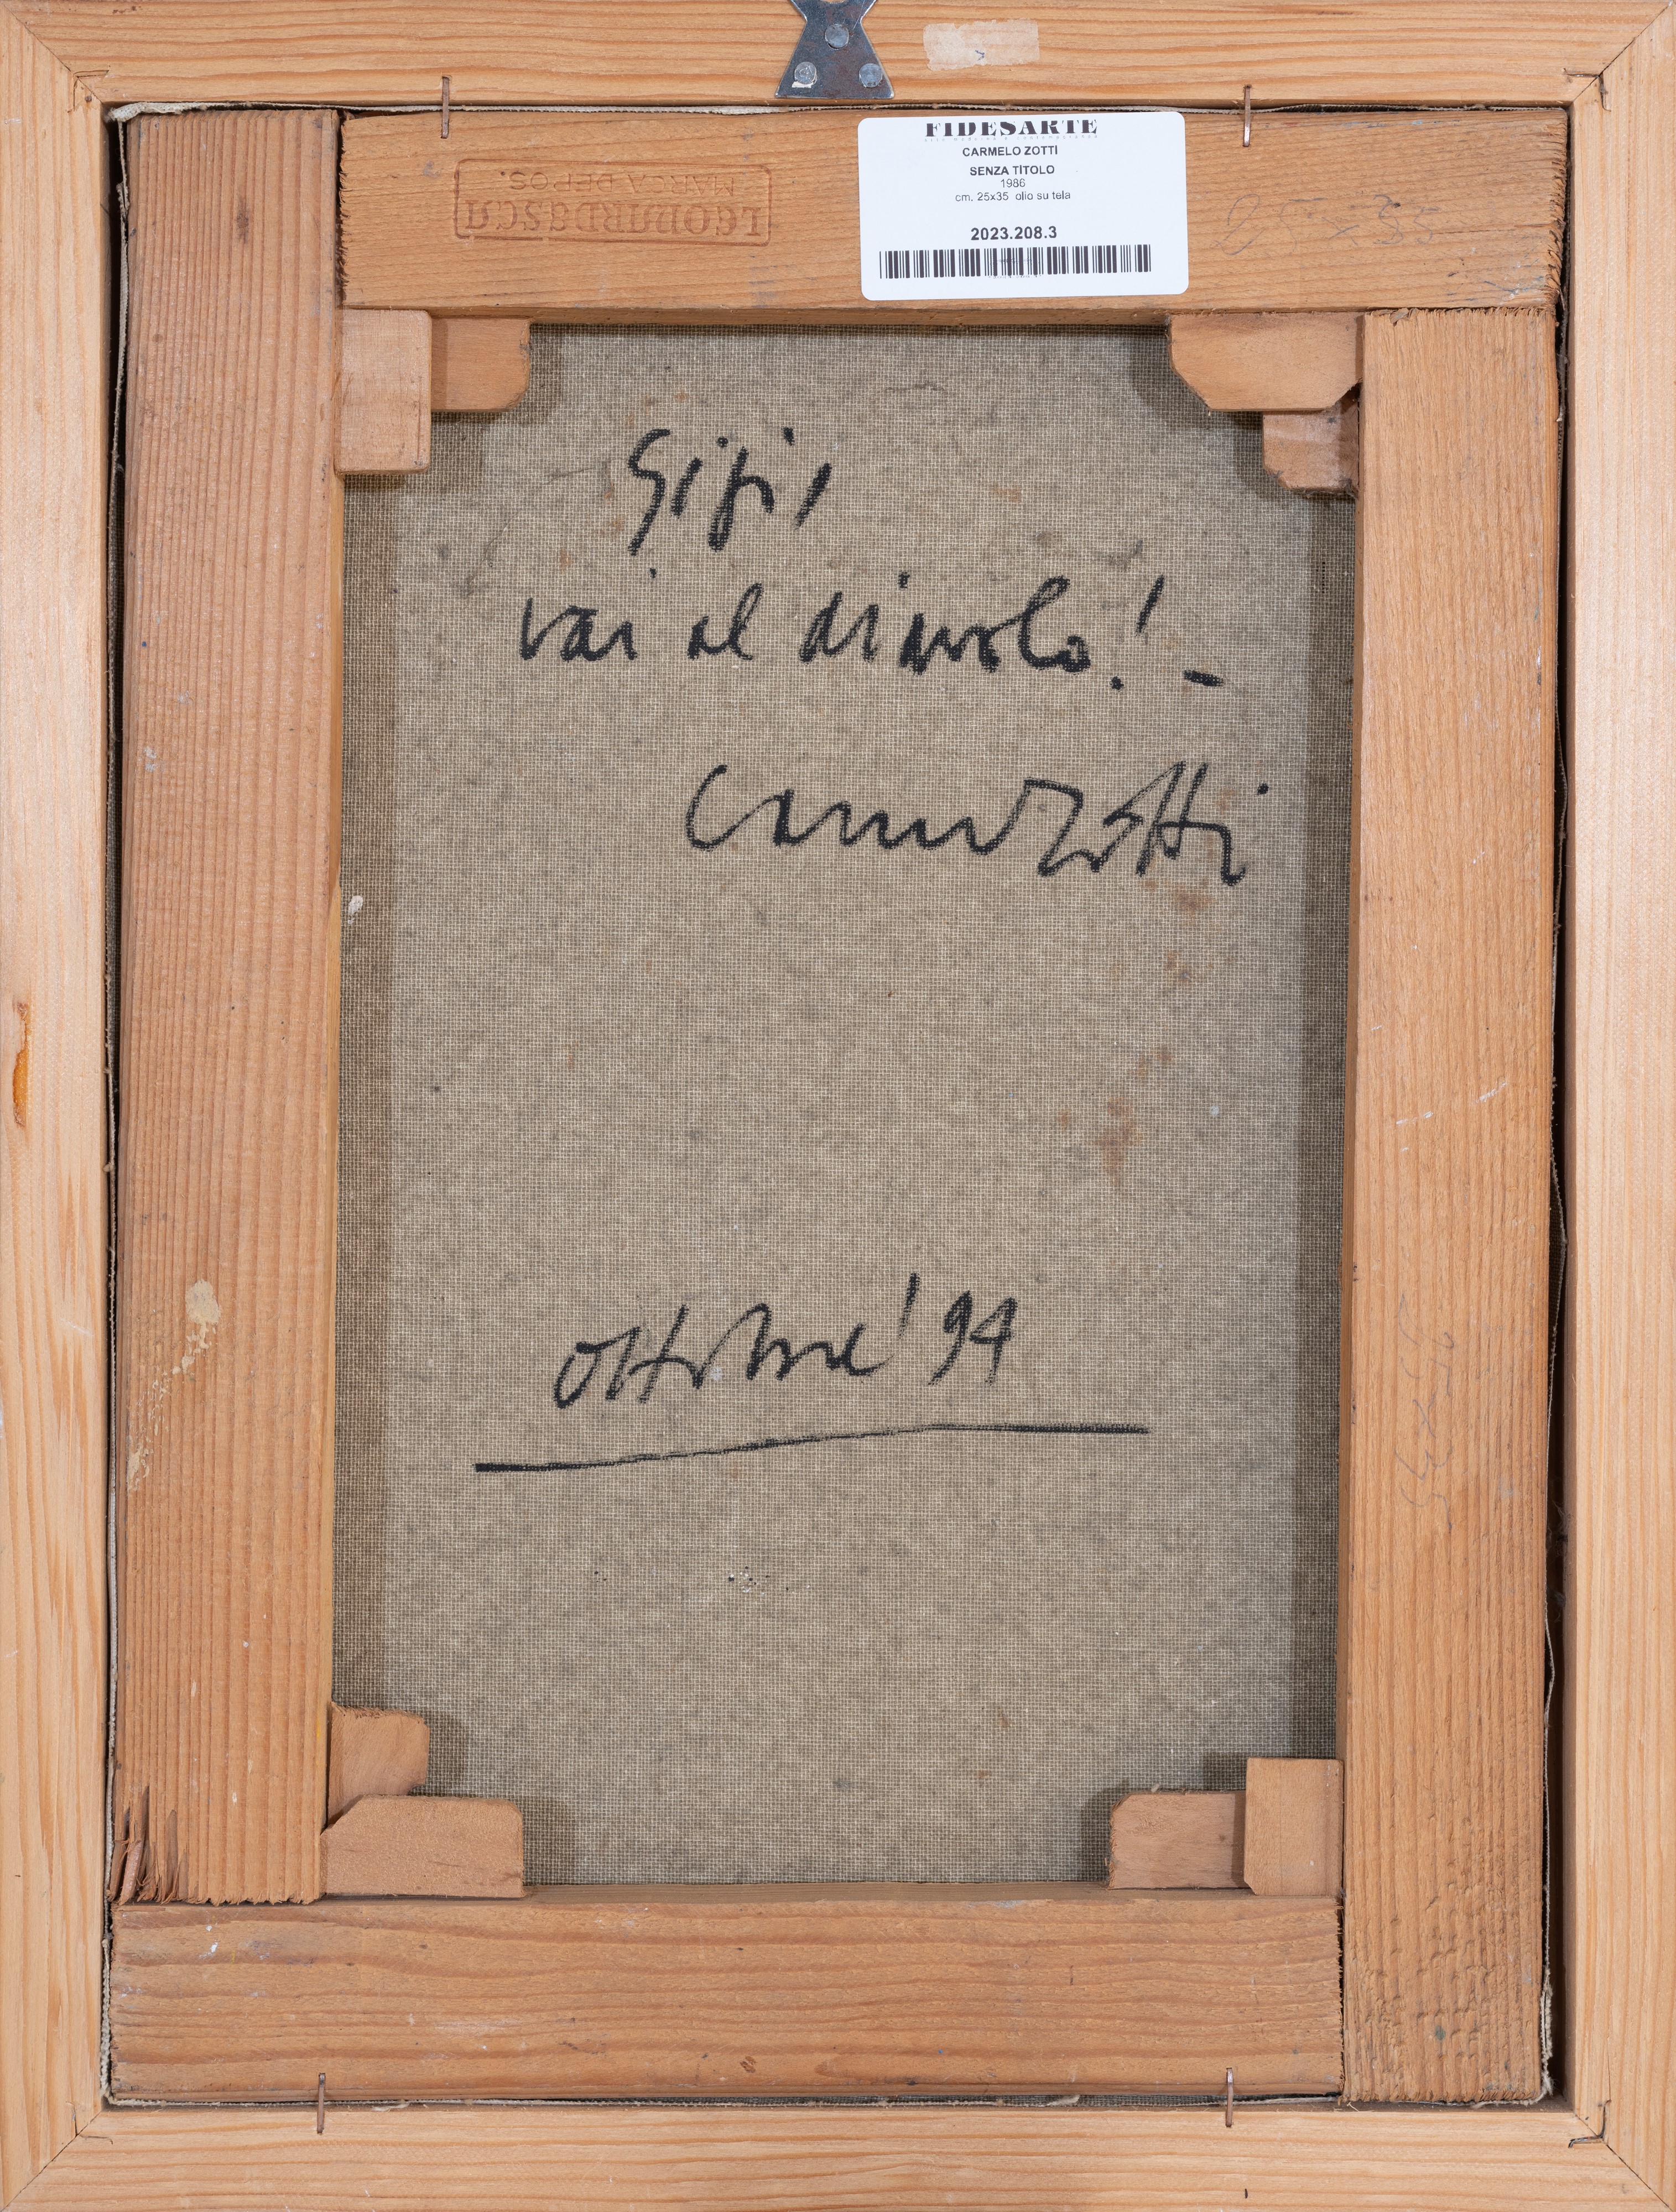 FIDESARTE
CARMELO ZOTTI
SENZA TITOLO
1986
cm. 25x35 olio su tela
2023.208.3
LEONARDESCA
MARCA DEPOS.
25x35
Gigi,
vai al diavolo! -
Carmelo Zotti
ottobre '94
25x35